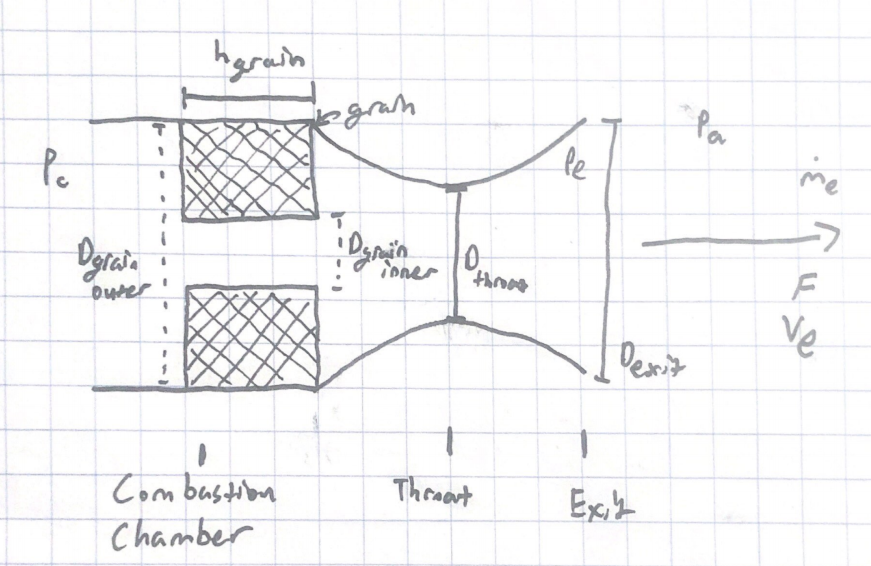 hgrain
grain
Pc
Pe
Pa
ṁe
Dgrain
outer
Dgrain
inner
Dthroat
F
Ve
Dexit
Combastion
Chamber
Throat
Exit